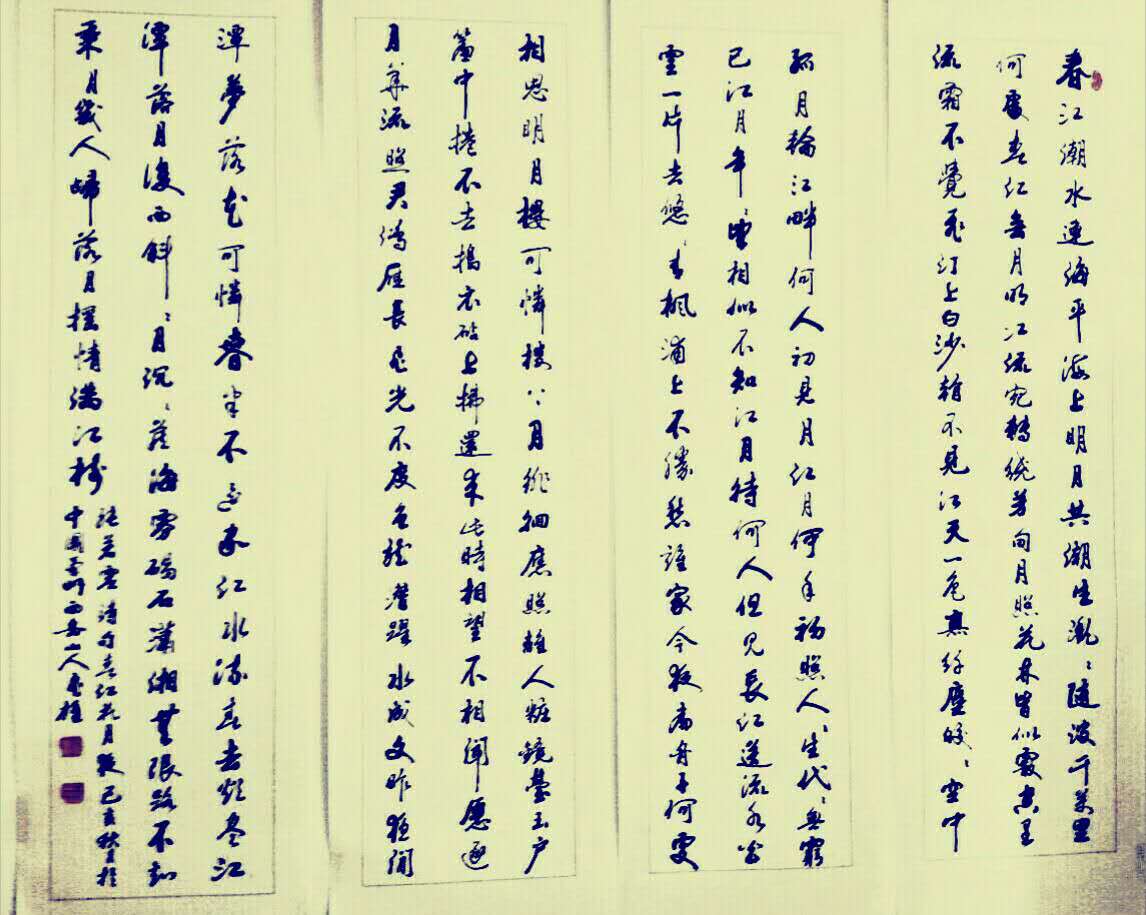 春江潮水連海平海上明月共潮生灩〻隨波千萬里
何處春江無月明江流宛轉繞芳甸月照花林皆似霰空里
流霜不覺飛汀上白沙看不見江天一色無纖塵皎〻空中
孤月輪江畔何人初見月江月何年初照人〻生代〻無窮
已江月年〻望相似不知江月待何人但見長江送流水白
雲一片去悠〻青楓浦上不勝愁誰家今夜扁舟子何處
相思明月樓可憐樓上月徘徊應照離人粧鏡臺玉户
簾中捲不去搗衣砧上拂還來此時相望不相聞愿逐
月華流照君鴻雁長飛光不度魚龍潛躍水成文昨夜閒
潭夢落花可憐春半不還家江水流春去欲盡江
潭落月復西斜〻月沉〻藏海霧碣石瀟湘無限路不知
乘月幾人歸落月搖情滿江樹
張若虛詩句春江花月夜己亥秋月於
中國